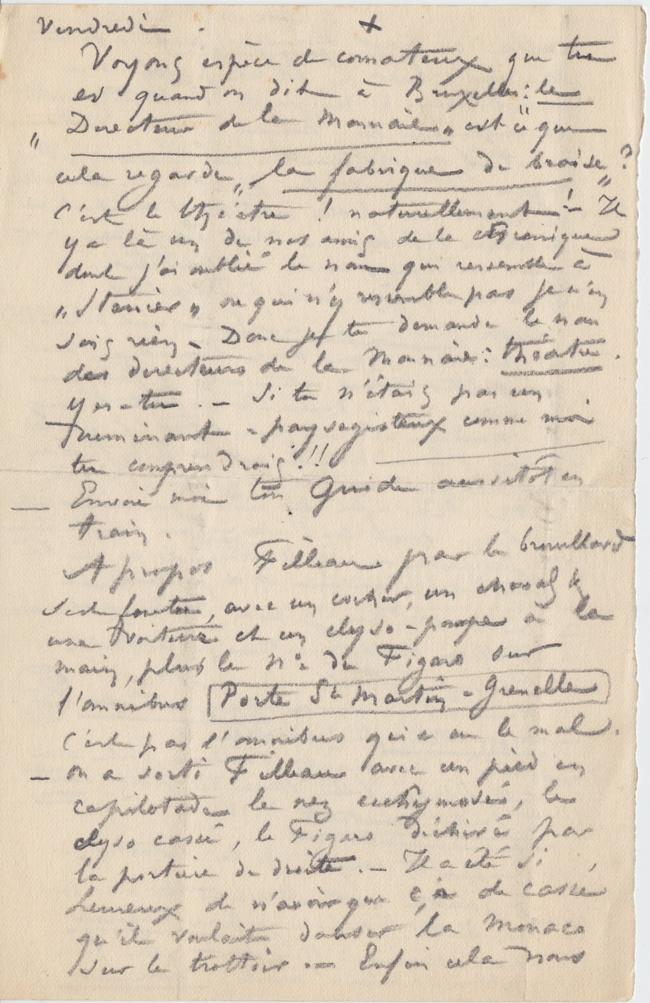 Vendredi . +
Voyons espèce de comateux que tu
es quand on dit à Bruxelles : le
" Directeur de la Monnaie " est ce que
cela regarde " la fabrique de braise " ?
C'est le théâtre ! naturellement ! – Il
y a là un de nos amis de la chronique
dont j'ai oublié le nom qui ressemble à
" Stenier " ou qui n'y ressemble pas je n'en
sais rien – Donc je te demande le nom
des directeurs de la Monnaie : théâtre .
y es-tu . – Si tu n'étais pas un
ruminant – paysagisteux comme moi
tu comprendrais !!!
– Envoie moi ton Guide aussitôt en
train .
A propos Filleau par le brouillard
s'est foutu, avec un cocher, un cheval &
une voiture et un clyso-pompe à la
main, plus le No du Figaro sur
l'omnibus Porte St Martin – Grenelle
C'est pas l'omnibus qui a eu le mal .
– on a sorti Filleau avec un pied en
capilotade le nez ecchymosé, le
clyso cassé, le Figaro déchiré par
la portière de droite . – Il a été si
heureux de n'avoir que ça de cassé
qu'il voulait danser la Monaco
sur le trottoir – Enfin cela nous